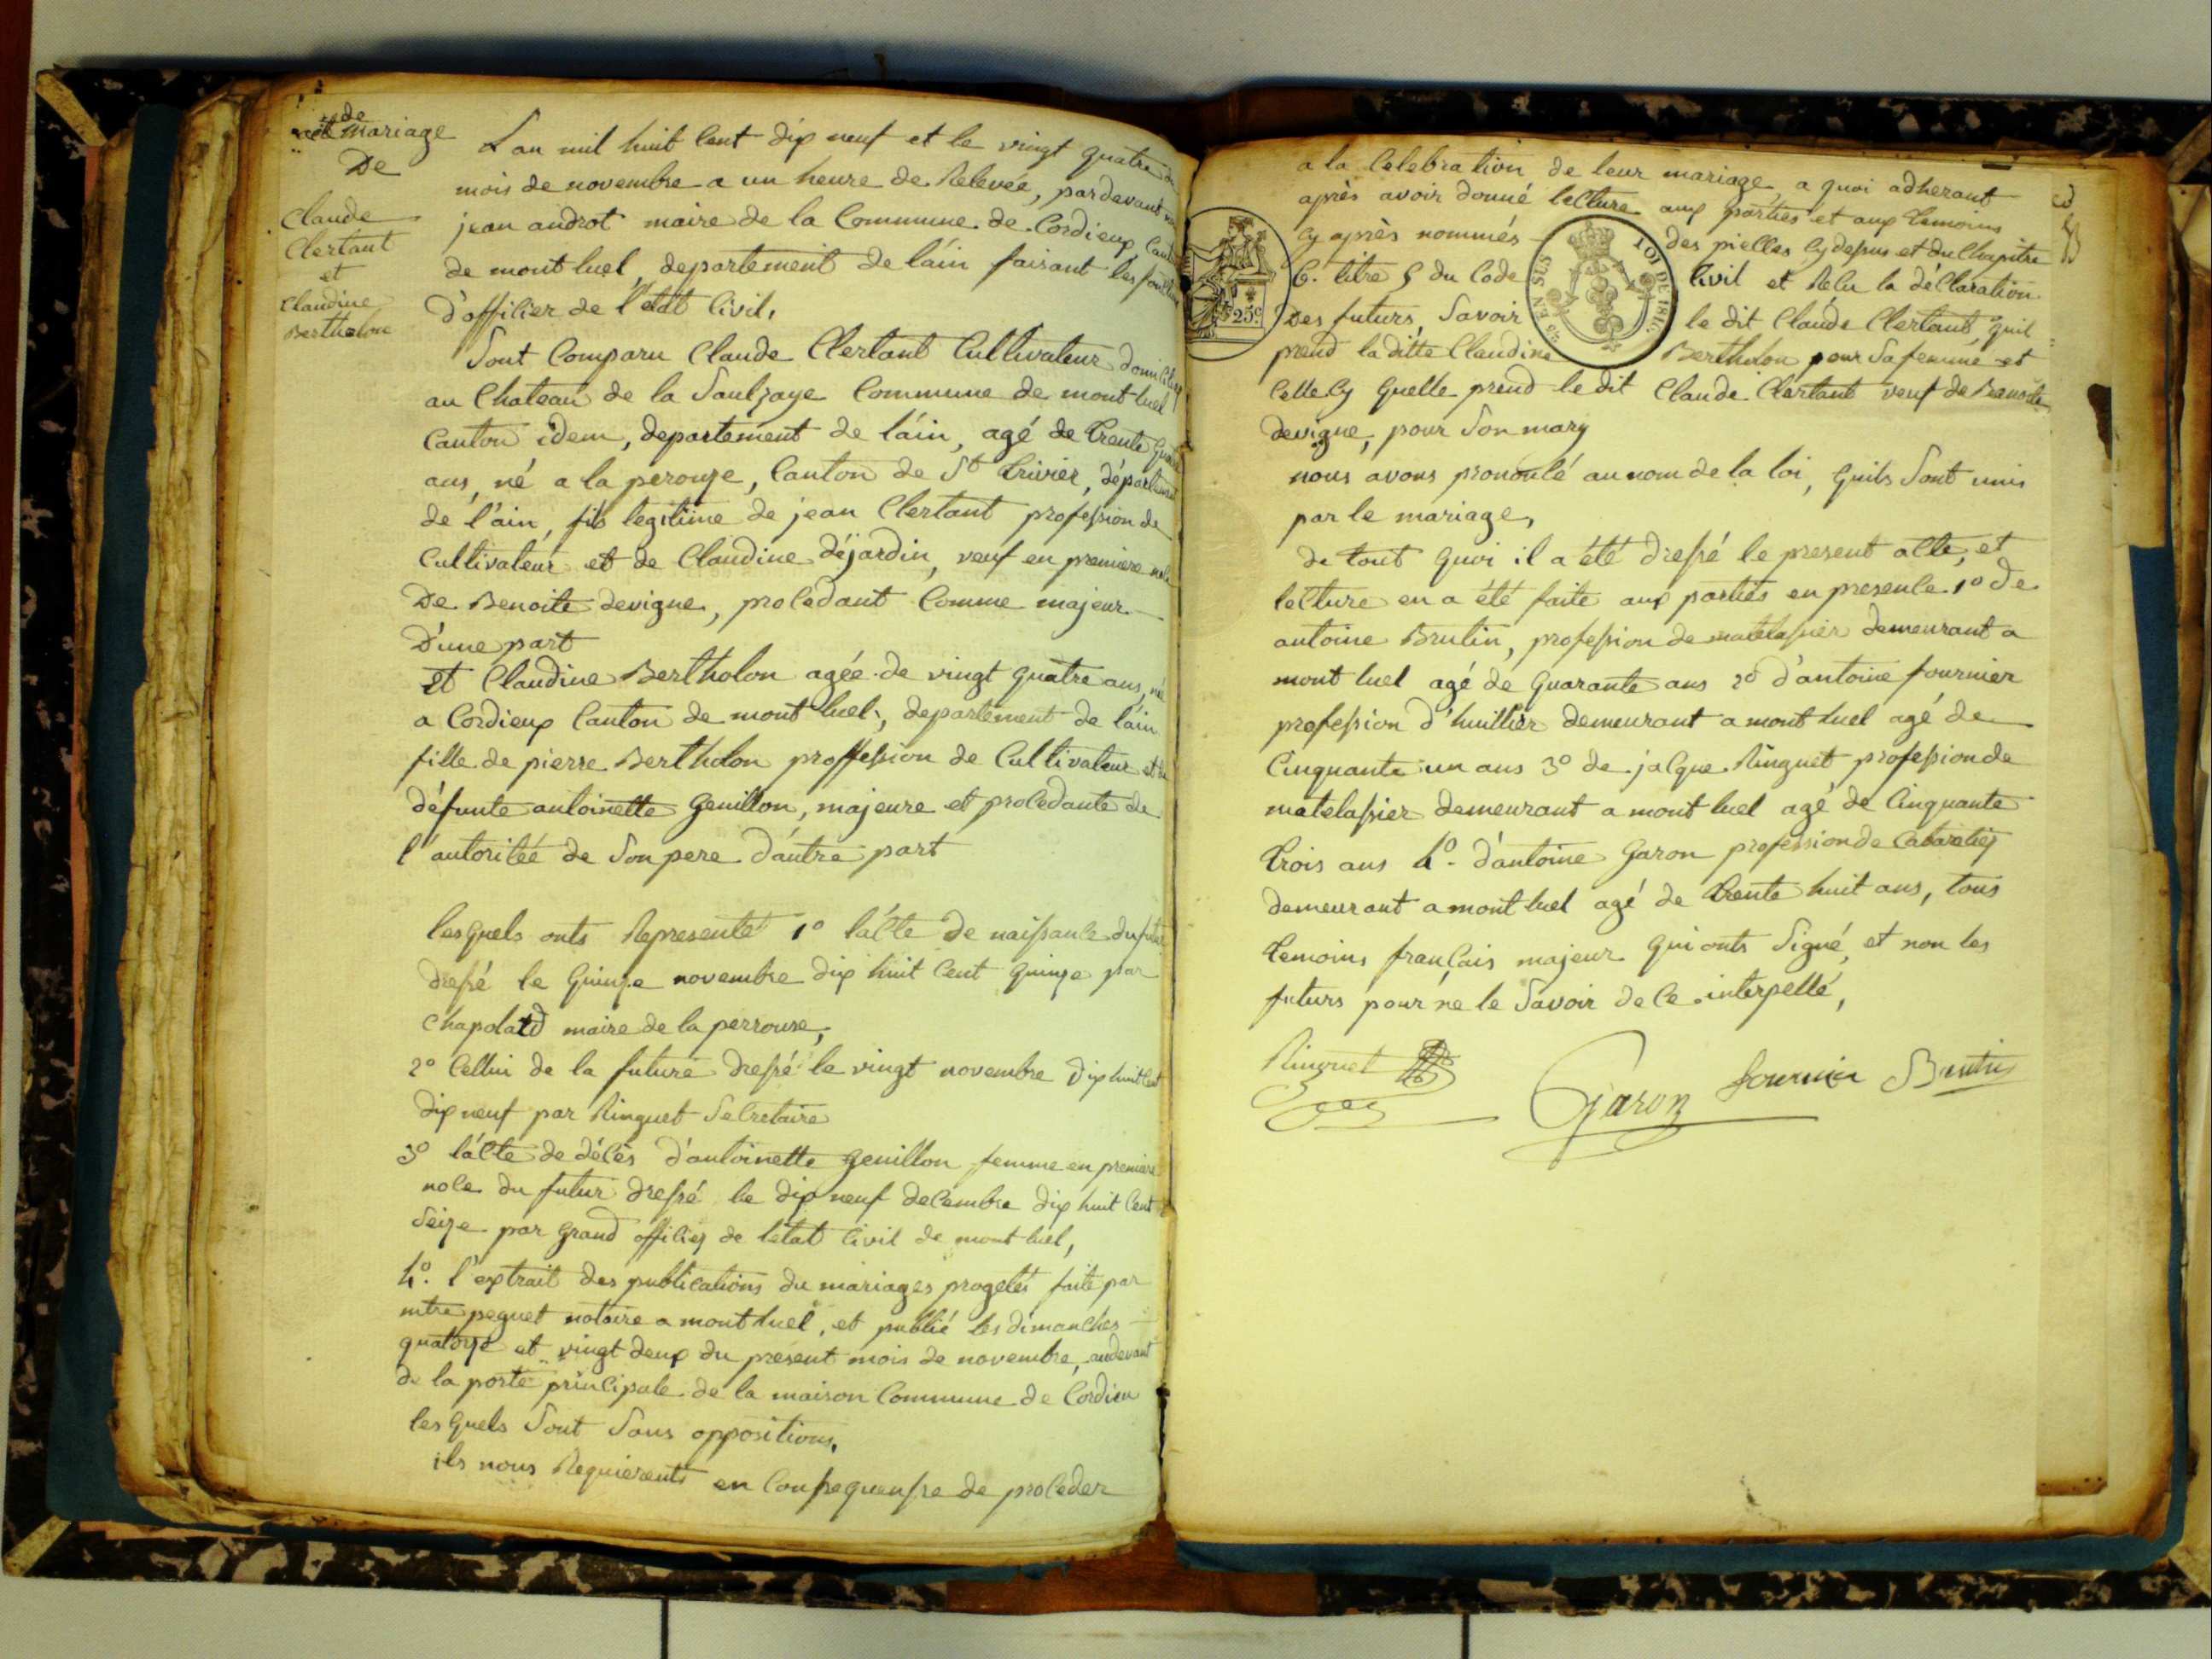 de
acte mariage
De
Claude
Clertant
et
Claudine
Bertholon
L'an mil huit Cent dix neuf et le vingt quatre du
mois de novembre a un heure de Relevée, pardevant nous
jean androt maire de la Commune de Cordieux Canton
de mont luel, departement de l'ain faisant les fonctions
D'officier de l'etat Civil,
Sont Comparu Claude Clertant Cultivateur domicilié
au Chateau de la Saulzaye Commune de mont luel
Canton idem, departement de l'ain, agé de trente quatre
ans, né a la perouze, Canton de St trivier, département
de l'ain, fils legitime de jean Clertant profession de
Cultivateur et de Claudine Déjardin, veuf en premiere noce
De Benoite devigne, procedant Comme majeur
D'une part
Et Claudine Bertholon agée de vingt quatre ans, né
a Cordieux Canton de mont luel, departement de l'ain
fille de pierre Bertholon proffession de Cultivateur et de
défunte antoinette Genillon, majeure et procedante de
l'autoritée de Son pere D'autre part
lesquels onts Representé 1º l'acte de naissance du futur
dressé le quinze novembre dix huit Cent quinze par
Chapolard maire de la perrouse,
2º Cellui de la future dressé le vingt novembre dix huit Cent
dix neuf par Ringuet Secretaire
3º l'acte de décès d'antoinette genillon femme en premiere
noce du futur dressé le dix neuf decembre dix huit Cent
Seize par Grand officier de letat Civil de mont luel,
4º. l'extrait des publications du mariages progetés faite par
mtre peguet notaire a mont luel, et publié les dimanches
quatorze et vingt deux du present mois de novembre, audevant
de la porte principale de la maison Commune de Cordieu
lesquels Sont Sans oppositions,
ils nous Requierents en Conssequensse de proceder
a la Celebration de leur mariage, a quoi adherant
après avoir donné lecture aux parties et aux temoins
Cy après nommés des pieces Cy dessus et du Chapitre
6. titre 5 du Code Civil et Relu la déclaration
Des futurs, Savoir le dit Claude Clertant quil
prend la ditte Claudine Bertholon pour Sa femme et
Celle Cy quelle prend le dit Claude Clertant veuf de Benoite
devigne, pour Son mary
nous avons prononcé au nom de la loi, quils Sont unis
par le mariage,
de tout quoi il a été dressé le present acte, et
lecture en a été faite aux parties en presence 1º de
antoine Brutin, profession de matelassier demeurant a
mont luel agé de quarante ans 2º d'antoine fournier
profession d'huillier demeurant a mont luel agé de
Cinquante un ans 3º de jacque Ringuet profession de
matelassier demeurant a mont luel agé de Cinquante
trois ans 4º. d'antoine Garon profession de Cabaretier
demeurant a mont luel agé de trente huit ans, tous
temoins français majeur qui onts Signé, et non les
futurs pour ne le Savoir de ce interpellé,
25c.
25 EN SUS
LOI DE 1816.
Ringuet
Garon
fournier
Brutin